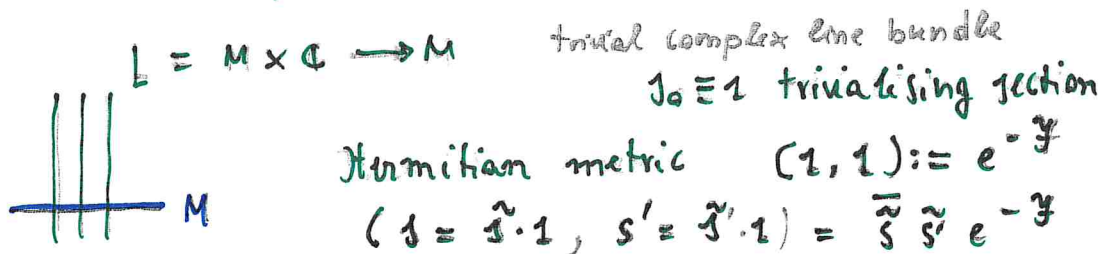 L = M × ℂ → M trivial complex line bundle
s₀ ≡ 1 trivialising section
Hermitian metric (1, 1) := e^{-y}
M (s = s̃·1, s' = s̃'·1) = \overline{s̃} s̃' e^{-y}